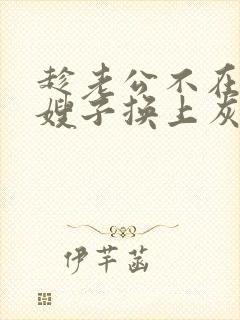 趁老公不在
嫂子换上灰
伊芊菡